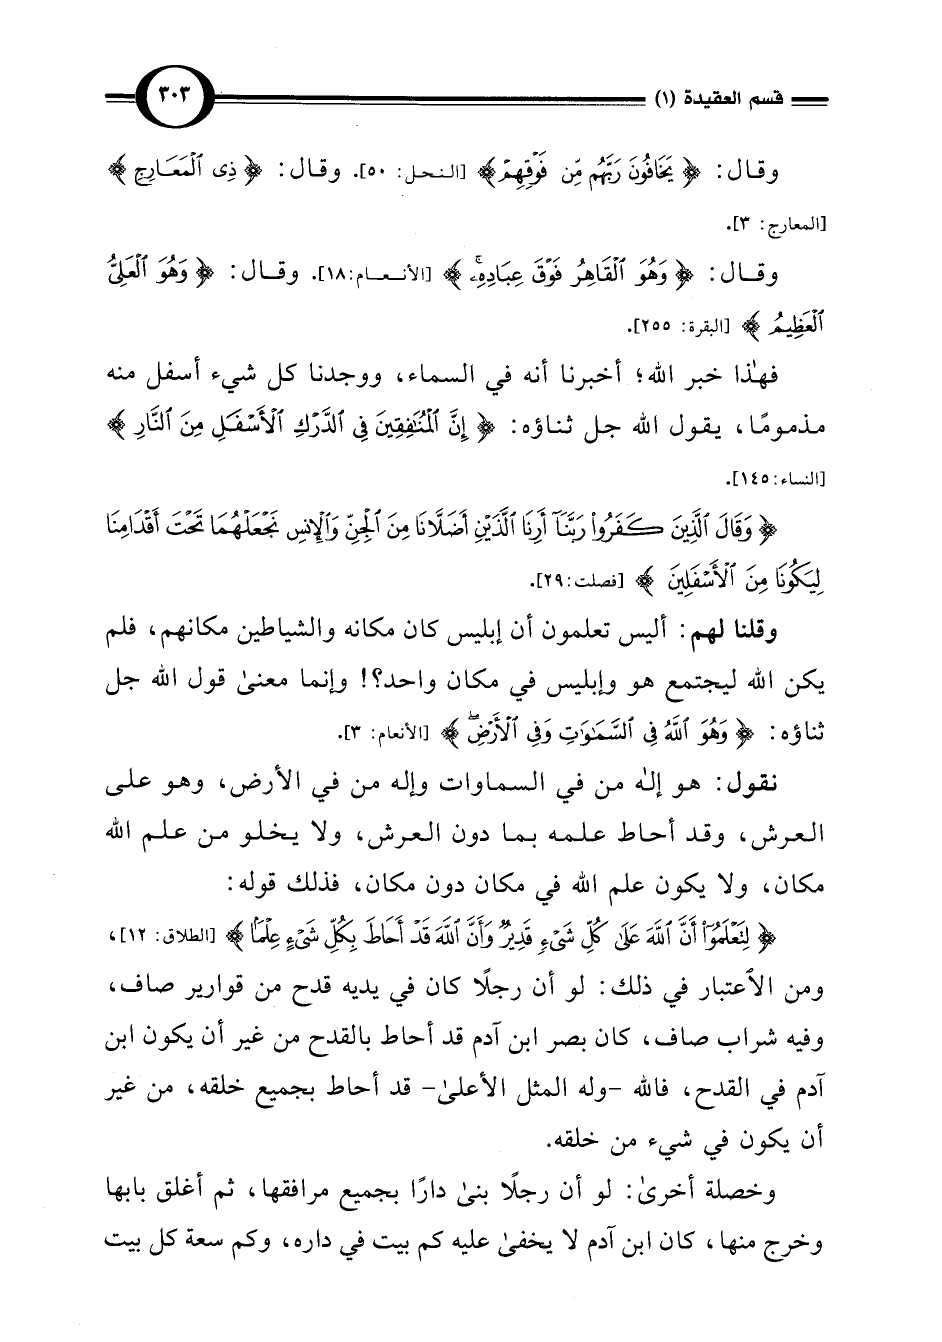 قسم العقيدة (١) ٣٠٣
وقال: ﴿ يَخَافُونَ رَبَّهُم مِّن فَوْقِهِمْ﴾ [النحل: ٥٠]. وقال: ﴿ ذِى ٱلْمَعَارِجِ ﴾
[المعارج: ٣].
وقال: ﴿ وَهُوَ ٱلْقَاهِرُ فَوْقَ عِبَادِهِۦۚ ﴾ [الأنعام:١٨]. وقال: ﴿ وَهُوَ ٱلْعَلِىُّ
ٱلْعَظِيمُ ﴾ [البقرة: ٢٥٥].
فهٰذا خبر الله؛ أخبرنا أنه في السماء، ووجدنا كل شيء أسفل منه
مذمومًا، يقول الله جل ثناؤه: ﴿ إِنَّ ٱلْمُنَٰفِقِينَ فِى ٱلدَّرْكِ ٱلْأَسْفَلِ مِنَ ٱلنَّارِ ﴾
[النساء:١٤٥].
﴿ وَقَالَ ٱلَّذِينَ كَفَرُوا۟ رَبَّنَآ أَرِنَا ٱلَّذَيْنِ أَضَلَّانَا مِنَ ٱلْجِنِّ وَٱلْإِنسِ نَجْعَلْهُمَا تَحْتَ أَقْدَامِنَا
لِيَكُونَا مِنَ ٱلْأَسْفَلِينَ ﴾ [فصلت:٢٩].
وقلنا لهم: أليس تعلمون أن إبليس كان مكانه والشياطين مكانهم، فلم
يكن الله ليجتمع هو وإبليس في مكان واحد؟! وإنما معنىٰ قول الله جل
ثناؤه: ﴿ وَهُوَ ٱللَّهُ فِى ٱلسَّمَٰوَٰتِ وَفِى ٱلْأَرْضِۖ ﴾ [الأنعام: ٣].
نقول: هو إلٰه من في السماوات وإله من في الأرض، وهو على
العرش، وقد أحاط علمه بما دون العرش، ولا يخلو من علم الله
مكان، ولا يكون علم الله في مكان دون مكان، فذلك قوله:
﴿ لِتَعْلَمُوٓا۟ أَنَّ ٱللَّهَ عَلَىٰ كُلِّ شَىْءٍ قَدِيرٌ وَأَنَّ ٱللَّهَ قَدْ أَحَاطَ بِكُلِّ شَىْءٍ عِلْمًۢا﴾ [الطلاق: ١٢]،
ومن الاعتبار في ذلك: لو أن رجلًا كان في يديه قدح من قوارير صاف،
وفيه شراب صاف، كان بصر ابن آدم قد أحاط بالقدح من غير أن يكون ابن
آدم في القدح، فالله -وله المثل الأعلىٰ- قد أحاط بجميع خلقه، من غير
أن يكون في شيء من خلقه.
وخصلة أخرىٰ: لو أن رجلًا بنىٰ دارًا بجميع مرافقها، ثم أغلق بابها
وخرج منها، كان ابن آدم لا يخفىٰ عليه كم بيت في داره، وكم سعة كل بيت